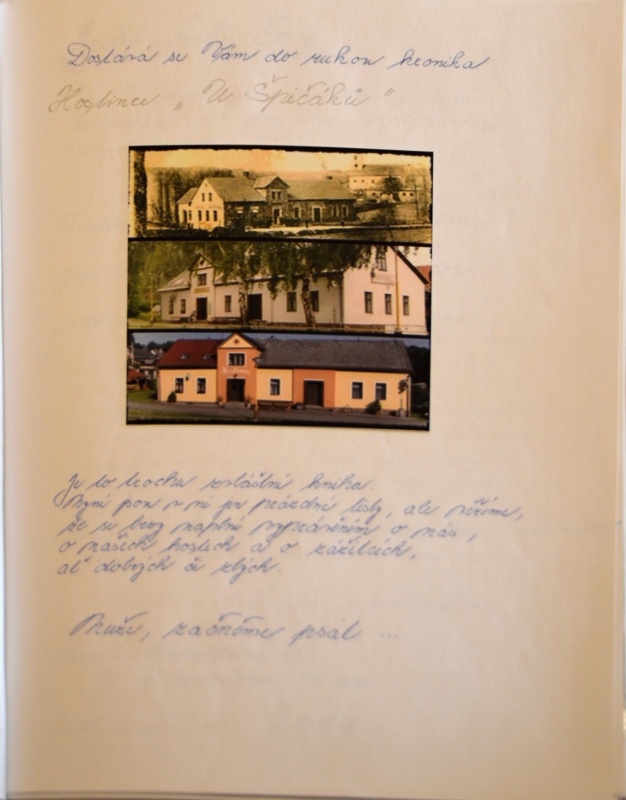 Dostává se Vám do rukou kronika
Hostince „U Špičáků"
Je to trochu zvláštní kniha.
Nyní jsou v ní jen prázdné listy, ale věříme,
že se brzy naplní vyprávěním o nás,
o našich hostech a o zážitcích,
ať dobrých či zlých.
začněme psát ...